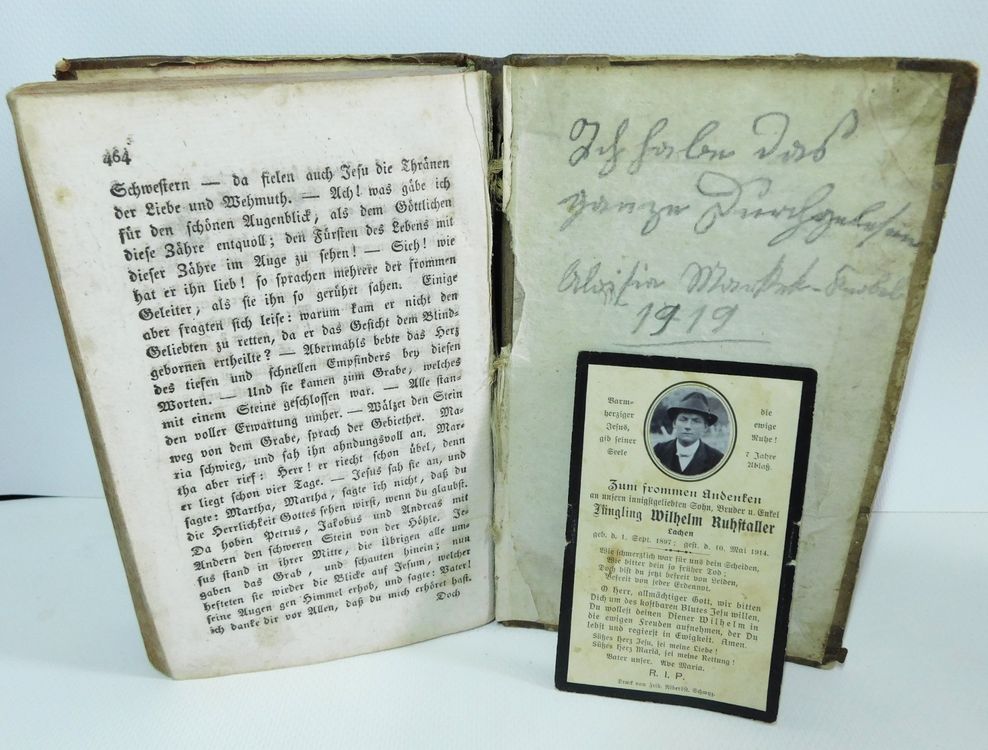 464
Schwestern — da fielen auch Jesu die Thränen
der Liebe und Wehmuth. — Ach! was gäbe ich
für den schönen Augenblick, als dem Göttlichen
diese Zähre entquoll; den Fürsten des Lebens mit
dieser Zähre im Auge zu sehen! — Sieh! wie
hat er ihn lieb! so sprachen mehrere der frommen
Geleiter, als sie ihn so gerührt sahen. Einige
aber fragten sich leise: warum kam er nicht den
Geliebten zu retten, da er das Gesicht dem Blind-
gebornen ertheilte? — Abermahls bebte das Herz
des tiefen und schnellen Empfinders bey diesen
Worten. — Und sie kamen zum Grabe, welches
mit einem Steine geschlossen war. — Alle stan-
den voller Erwartung umher. — Wälzet den Stein
weg von dem Grabe, sprach der Gebiether. Ma-
ria schwieg, und sah ihn ahndungsvoll an. Mar-
tha aber rief: Herr! er riecht schon übel, denn
er liegt schon vier Tage. — Jesus sah sie an, und
sagte: Martha, Martha, sagte ich nicht, daß du
die Herrlichkeit Gottes sehen wirst, wenn du glaubst.
Da hoben Petrus, Jakobus und Andreas mit
Andern den schweren Stein von der Höhle. Je-
sus stand in ihrer Mitte, die Übrigen alle um-
gaben das Grab, und schauten hinein; nun
hefteten sie wieder die Blicke auf Jesum, welcher
seine Augen gen Himmel erhob, und sagte: Vater!
ich danke dir vor Allen, daß du mich erhöret hast.
Doch
Ich habe das
ganze Durchgelesen
Aloisia
1919
Barm-
herziger
Jesus,
gib seiner
Seele
die
ewige
Ruhe!
7 Jahre
Ablaß.
Zum frommen Andenken
an unsern innigstgeliebten Sohn, Bruder u. Enkel
Jüngling Wilhelm Ruhstaller
Lachen
geb. d. 1. Sept. 1897; gest. d. 10. Mai 1914.
Wie schmerzlich war für uns dein Scheiden,
Wie bitter dein so früher Tod;
Doch bist du jetzt befreit von Leiden,
Befreit von jeder Erdennot.
O Herr, allmächtiger Gott, wir bitten
Dich um des kostbaren Blutes Jesu willen,
Du wollest deinen Diener Wilhelm in
die ewigen Freuden aufnehmen, der Du
lebst und regierst in Ewigkeit. Amen.
Süßes Herz Jesu, sei meine Liebe!
Süßes Herz Mariä, sei meine Rettung!
Vater unser. Ave Maria.
R. I. P.
Druck von Fridr. Schwyz.